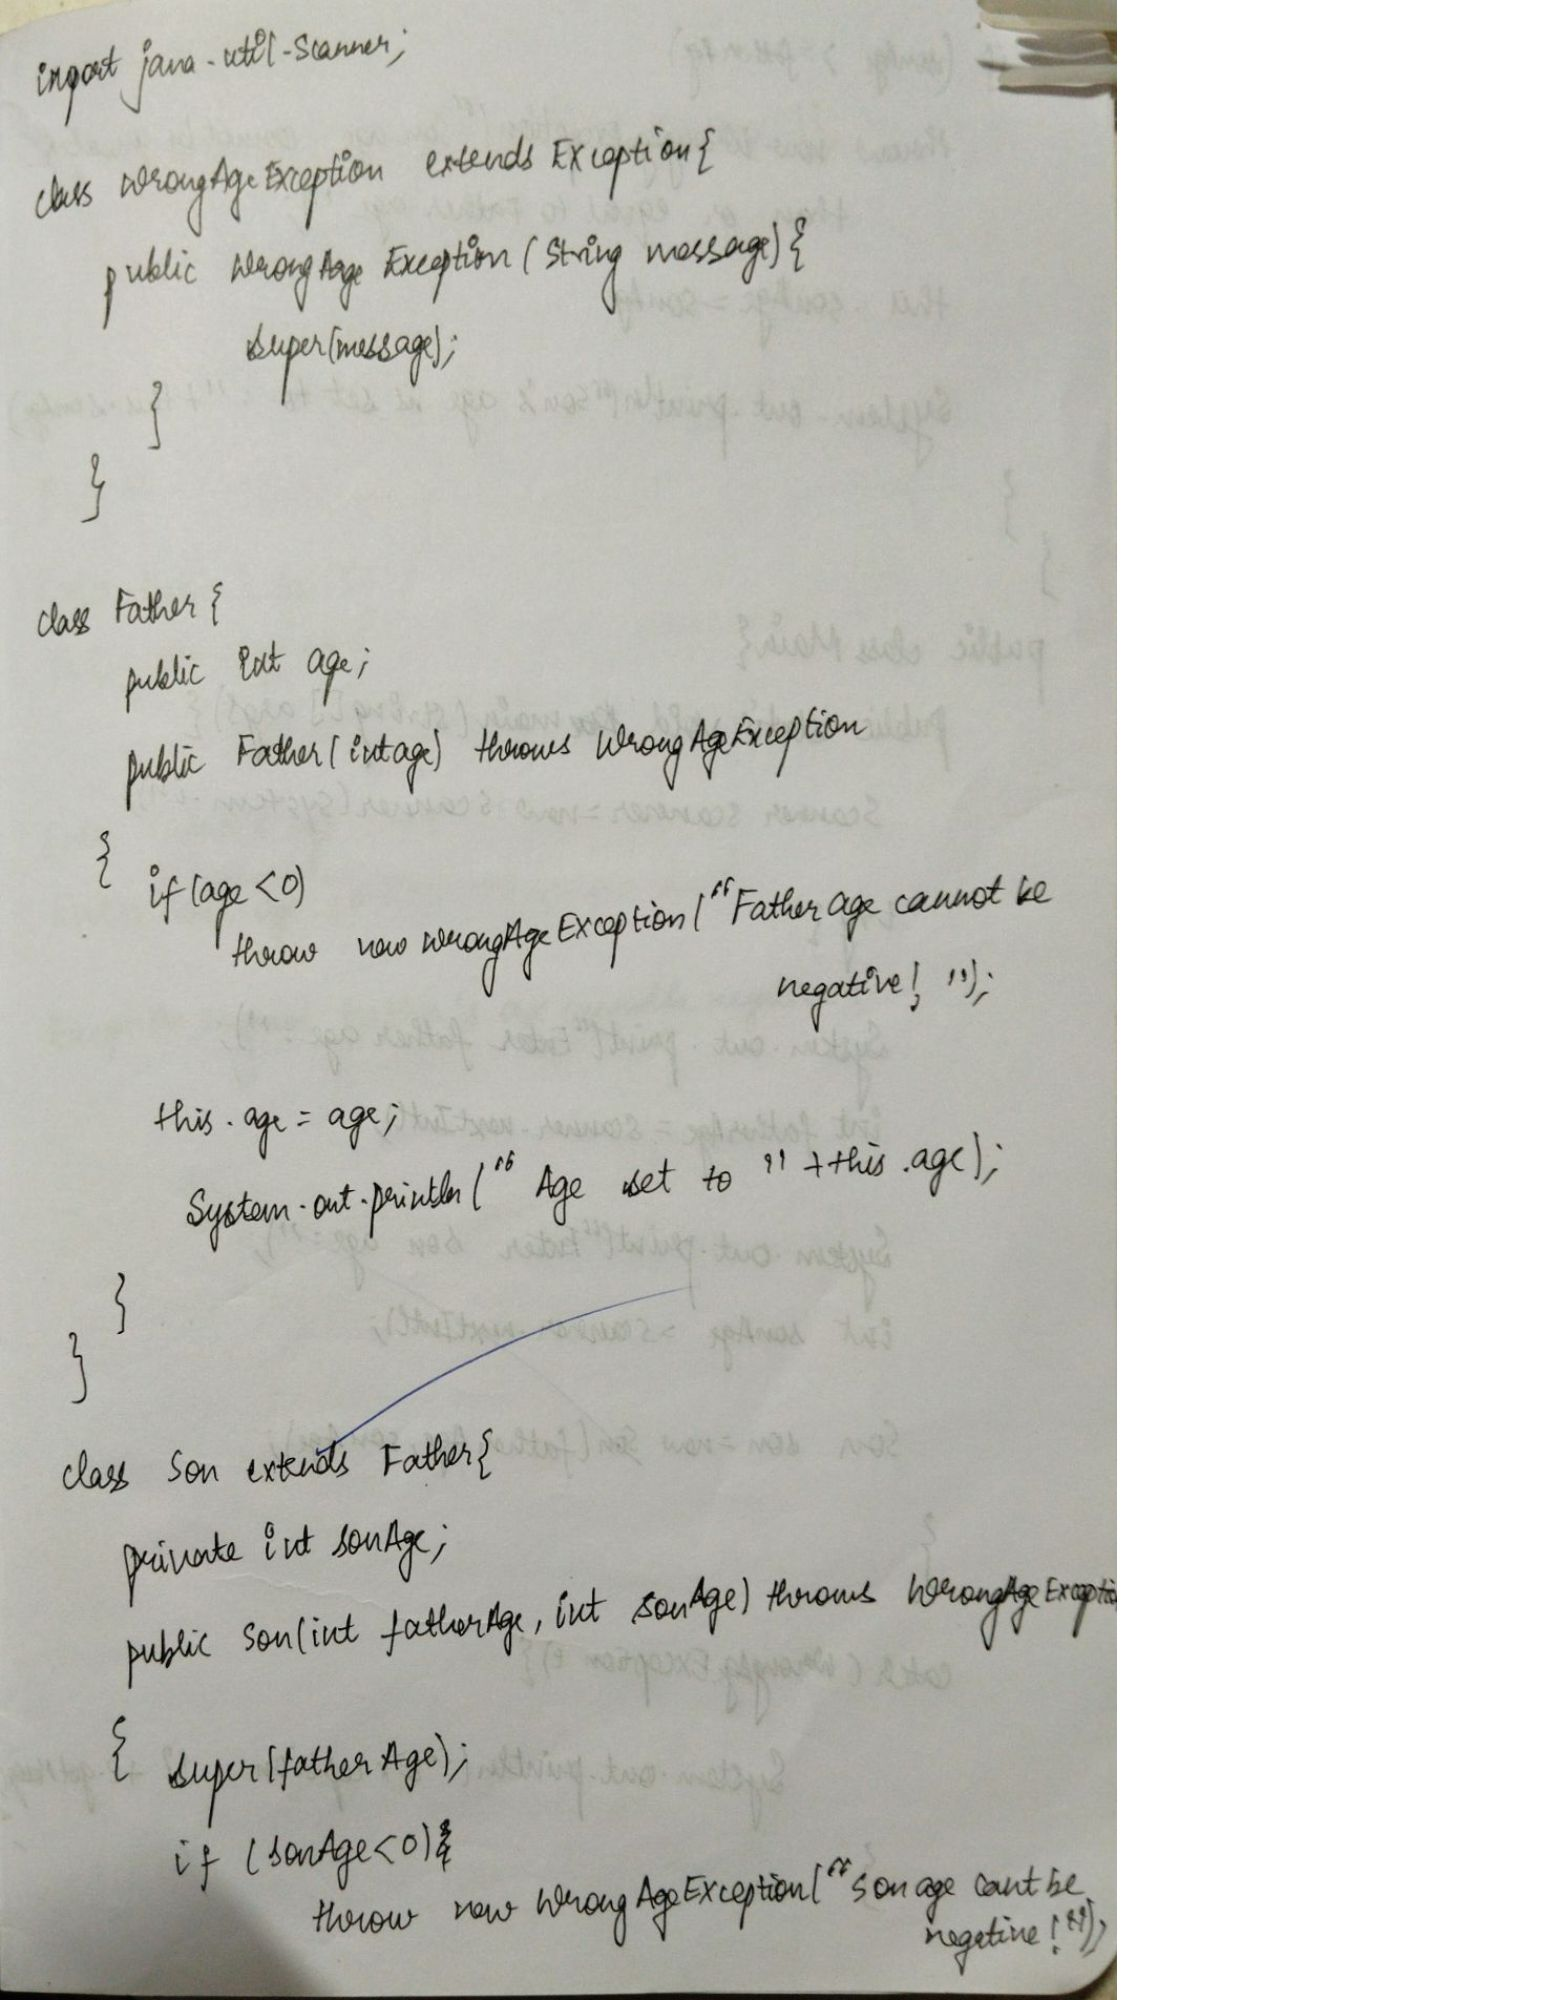 import java.util.Scanner;
class WrongAgeException extends Exception{
public WrongAgeException (String message){
super(message);
}
}
class Father {
public int age;
public Father(int age) throws WrongAgeException
{
if(age<0)
throw new WrongAgeException("Father age cannot be
negative! ");
this.age = age;
System.out.println(" Age set to " +this.age);
}
}
class Son extends Father{
private int sonAge;
public Son(int fatherAge, int sonAge) throws WrongAgeExceptio
{ super(fatherAge);
if (sonAge<0){
throw new WrongAgeException("Son age cant be
negative!");